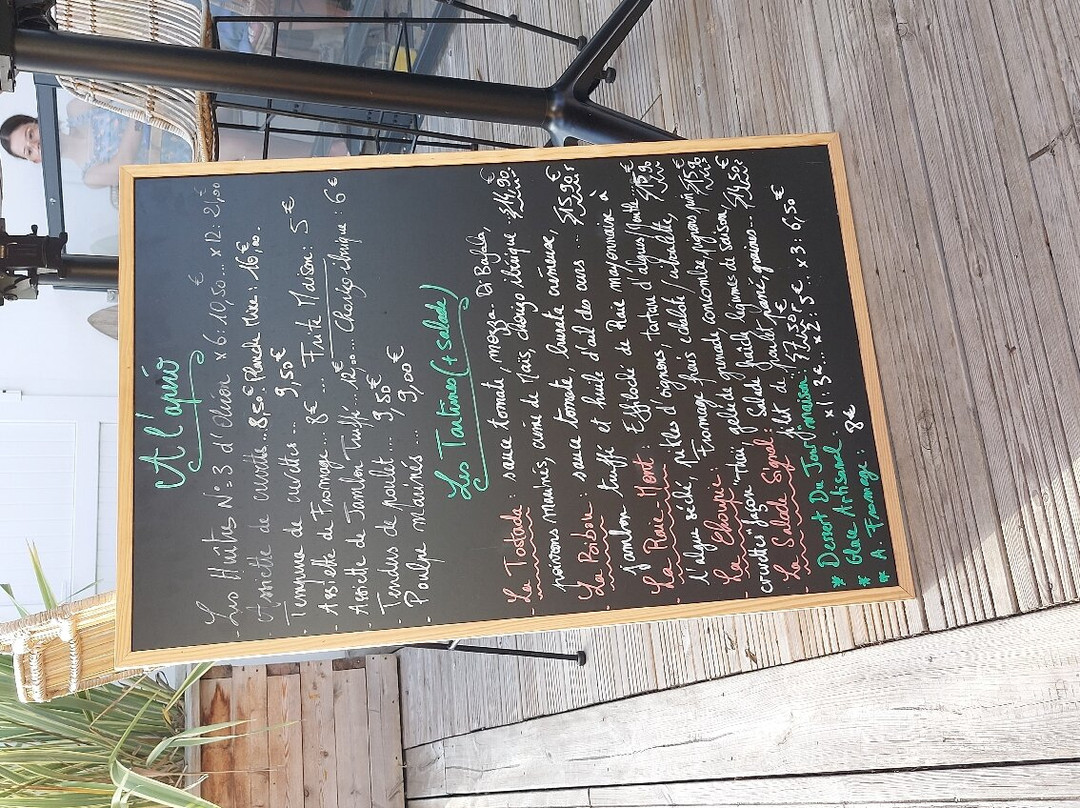 A l'apéro
- Les Huîtres N°3 d'Oléron x6: 10,50 € ... x12: 21,00
- Assiette de crevettes .. 8,50 € Planche Mixe: 16 €
- Tempura de crevettes ... 9,50 €
- Assiette de Fromage ... 8 € ... Frite Maison: 5 €
- Assiette de Jambon Truffé ... 12,00 € ... Chorizo ibérique: 6 €
- Tendus de poulet .. 9,50 €
- Poulpe marinés ... 9,00 €
Les Tartines (+ salade)
- La Tostada: sauce tomate, mozza Di Bufala,
poivrons marinés, crème de Maïs, chorizo ibérique .. 14,90 €
- La Boibou: sauce tomate, burrata crémeuse,
jambon truffé et huile d'ail des ours .. 15,90 €
- La Raie-Mont: Effiloché de Raie mayonnaise à
l'algue séché, pickles d'oignons, tartare d'algues, Menthe 15,90 €
- La : Fromage frais échalote/ciboulette,
crevettes façon Thaï, gelée de grenade, concombre, pignons pin 15,90 €
- La Salade Signal: Salade fraîche, légumes de saison,
filet de poulet pané, graines ... 14,50 €
* Dessert Du Jour maison: 7,50 €
* Glace Artisanal: x1: 3 € .. x2: 5 € .. x3: 6,50 €
* A. Fromage: 8 €